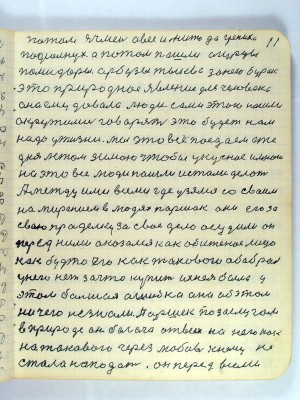 потом ячмен авес и жито да греиха 11
подсолнух а потом пошли агурцы
помидоры. арбузы тыква занею бурак
это природное явление для человека
она следовала люди сами этою пошли
окрутили говарят это будет нам
надо ужизни. мы это всё поедаем сте
дня летом зимою чтобы укусное
на это все люди пошли истали делот
А между ими всеми где узялся со своим
на мирением в людях паршок они его за
сваю проделку за свое дело осудили он
перед ними оказался как обиженое лицо
как будто его как такового обабрал
унего нет за что купит именя была у
этом большая ошибка она об этом
ничего не знали. Паршек по заслугам
в природе он богача ответ на него как
на такового через любов к нему не
стала нападат. он перед всеми